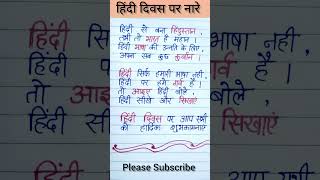 हिंदी दिवस पर नारे
हिंदी से बना हिंदुस्तान,
तभी तो भारत है महान।
हिंदी भाषा की उन्नति के लिए,
अपना सब कुछ कुर्बान।
हिंदी सिर्फ हमारी भाषा नहीं,
हिंदी पर हमें गर्व है।
तो आइए हिंदी बोलें,
हिंदी सीखें और सिखाएं
हिंदी दिवस पर आप सभी
को हार्दिक शुभकामनाएं
Please Subscribe